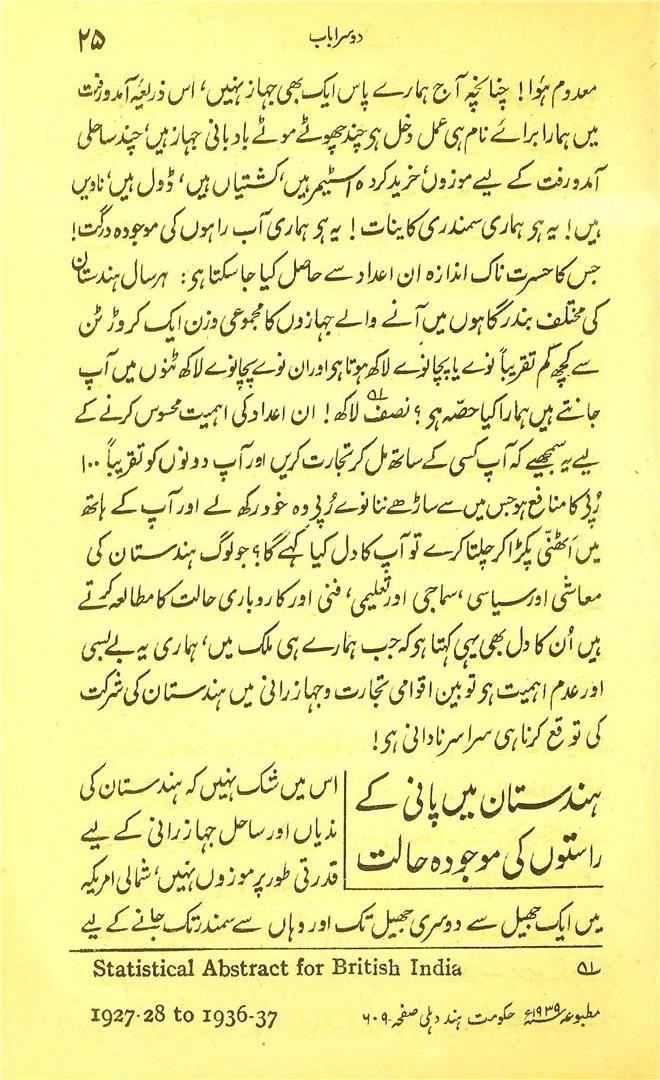 دوسرا باب
۲۵
معدوم ہؤا! چنانچہ آج ہمارے پاس ایک بھی جہاز نہیں، اس ذریعۂ آمدورفت
میں ہمارا برائے نام ہی عمل دخل ہو چند چھوٹے موٹے بادبانی جہاز ہیں، چند ساحلی
آمدورفت کے لیے موزوں، خرید کردہ اسٹیمر ہیں، کشتیاں ہیں، ڈول ہیں، ناویں
ہیں! یہ ہو ہماری سمندری کاینات! یہ ہو ہماری آب راہوں کی موجودہ درگت!
جس کا حسرت ناک اندازہ ان اعداد سے حاصل کیا جا سکتا ہو: ہر سال ہندستان
کی مختلف بندرگاہوں میں آنے والے جہازوں کا مجموعی وزن ایک کروڑ ٹن
سے کچھ کم تقریباً نوے یا پچانوے لاکھ ہوتا ہو اور ان نوے پچانوے لاکھ ٹنوں میں آپ
جانتے ہیں ہمارا کیا حصّہ ہو؟ نصف لاکھ! ان اعداد کی اہمیت محسوس کرنے کے
لیے یہ سمجھیے کہ آپ کسی کے ساتھ مل کر تجارت کریں اور آپ دونوں کو تقریباً ۱۰۰
رُپئی کا منافع ہو جس میں سے ساڑھے ننانوے رُپی وہ خود رکھ لے اور آپ کے ہاتھ
میں اَٹھنّی پکڑا کر چلتا کرے تو آپ کا دل کیا کہے گا؟ جو لوگ ہندستان کی
معاشی اور سیاسی، سماجی اور تعلیمی، فنی اور کاروباری حالت کا مطالعہ کرتے
ہیں اُن کا دل بھی یہی کہتا ہو کہ جب ہمارے ہی ملک میں، ہماری یہ بے بسی
اور عدم اہمیت ہو تو بین اقوامی تجارت و جہازرانی میں ہندستان کی شرکت
کی توقع کرنا ہی سراسر نادانی ہو!
ہندستان میں پانی کے
راستوں کی موجودہ حالت
اس میں شک نہیں کہ ہندستان کی
ندیاں اور ساحل جہازرانی کے لیے
قدرتی طور پر موزوں نہیں، شمالی امریکہ
میں ایک جھیل سے دوسری جھیل تک اور وہاں سے سمندر تک جانے کے لیے
۵۱ Statistical Abstract for British India
1927-28 to 1936-37 مطبوعہ ۱۹۳۹ء حکومت ہند دہلی صفحہ ۶۰۹